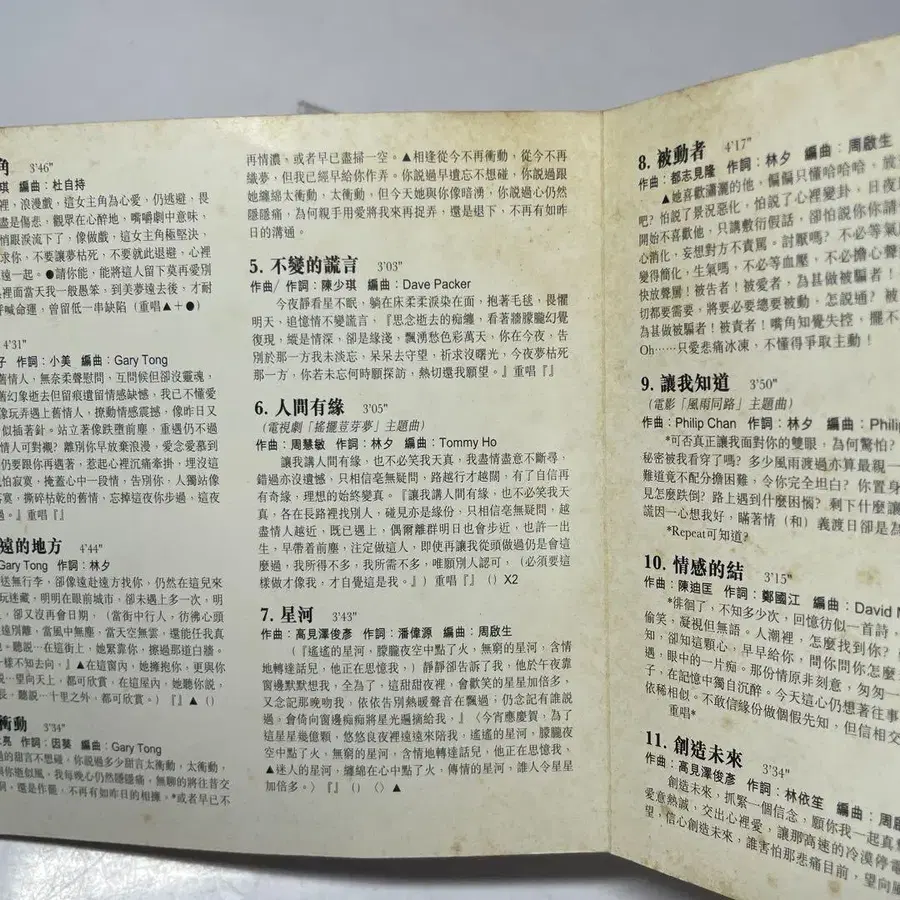 角 3'46"
琪 編曲：杜自持
裡，浪漫戲，這女主角為心愛，仍逃避，畏
盡是傷悲，觀眾在心醉地，嘴嚼劇中意味，
悄跟淚流下了，像做戲，這女主角極堅決，
求你，不要讓夢枯死，不要就此退避，心裡
遠一起。●請你能，能將這人留下莫再愛別
為裡面當天我一般愚笨，到美夢遠去後，才
呼喊命運，曾留低一串缺陷（重唱▲＋●）
4'31"
子 作詞：小美 編曲：Gary Tong
舊情人，無奈柔聲慰問，互問候但卻沒靈魂，
舊幻象逝去但留痕遺留情感缺憾，我已不懂愛
像玩弄遇上舊情人，撩動情感震撼，像昨日又
似插著針。站立著像跌墮前塵，重遇仍不過
情人可對襯？離別你早放棄浪漫，愛念愛慕到
仍要跟你再遇著，惹起心裡沉痛牽掛，埋沒這
怕寂寞，掩蓋心中一段情，告別你，人獨站像
寞，撕碎枯乾的舊情，忘掉這夜你步過，這夜
過。』重唱『』
遠的地方 4'44"
Gary Tong 作詞：林夕
送無行李，卻像遠赴遠方找你，仍然在這兒來
玩迷藏，明明在眼前城市，卻未遇上多一次，明
，卻又沒再會日期，（當街中行人，彷彿心頭
遠別離，當風中無塵，當天空無雲，還能任我真
也，聽說…在這街上，她緊靠你，擦過那道白牆。
一樣不知去向，』▲在這窗內，她擁抱你，更與你
說…望向天上，都可欣賞，在這屋內，她聽你說，
長，聽說…十里之外，都可欣賞。）『』▲（）
衝動 3'34"
亮 作詞：因葵 編曲：Gary Tong
過的甜言不想碰，你說過多少甜言太衝動，太衝動，
與你逝似風，我每晚心仍然隱隱痛，無聊的將往昔交
洞，還是作罷，不再有如昨日的相擁，*或者早已不
再情濃，或者早已盡掃一空。▲相逢從今不再衝動，從今不再
織夢，但我已經早給你作弄。你說過早遺忘不想碰，你說過跟
她纏綿太衝動，太衝動，但今天她與你像暗湧，你說過心仍然
隱隱痛，為何親手用愛將我來再捉弄，還是退下，不再有如昨
日的溝通。
5. 不變的謊言 3'03"
作曲/ 作詞：陳少琪 編曲：Dave Packer
今夜靜看星不眠，躺在床柔柔淚染在面，抱著毛毯，畏懼
明天，追憶情不變謊言，『思念逝去的痴纏，看著牆朦朧幻覺
復現，縱是情深，卻是緣淺，飄湧愁色彩萬天，你在今夜，告
別於那一方我未淡忘，呆呆去守望，祈求沒曙光，今夜夢枯死
那一方，你若未忘何時願探訪，熱切還我願望。』重唱『』
6. 人間有緣 3'05"
（電視劇「搖擺荳芽夢」主題曲）
作曲：周慧敏 作詞：林夕 編曲：Tommy Ho
讓我講人間有緣，也不必笑我天真，我盡情盡意不斷尋，
錯過亦沒遺憾，只相信毫無疑問，路越行才越闊，有了自信再
有奇緣，理想的始終變真。『讓我講人間有緣，也不必笑我天
真，各在長路裡找別人，碰見亦是緣份，只相信毫無疑問，越
盡情人越近，既已遇上，偶爾離群明日也會步近，也許一出
生，早帶着前塵，注定做這人，即使再讓我從頭做過仍是會這
麼過，我所得不多，我所需不多，唯願別人認可，（必須要這
樣做才像我，才自覺這是我。』）重唱『』（）X2
7. 星河 3'43"
作曲：高見澤俊彥 作詞：潘偉源 編曲：周啟生
『遙遙的星河，朦朧夜空中點了火，無窮的星河，含情
地轉達話兒，他正在思憶我，）靜靜卻告訴了我，他於午夜靠
窗邊默默想我，全為了，這甜甜夜裡，會歡笑的星星加倍多，
又念記那晚吻我，依依告別熱暖聲音在飄過；仍念記有誰說
過，會倚向窗邊痴痴將星光遍摘給我，』〈今宵應慶賀，為了
這星星幾億顆，悠悠良夜裡遠遠來陪我，遙遙的星河，朦朧夜
空中點了火，無窮的星河，含情地轉達話兒，他正在思憶我，
▲迷人的星河，纏綿在心中點了火，傳情的星河，誰人令星星
加倍多。〉『』（）〈〉▲
8. 被動者 4'17"
作曲：都志見隆 作詞：林夕 編曲：周啟生
▲她喜歡瀟灑的他，偏偏只懂哈哈哈，放
吧？怕說了景況惡化，怕說了心裡變卦，日夜
開始不喜歡他，只講敷衍假話，卻怕說你你請
心消化，妄想對方不責罵。討厭嗎？不必等氣
變得簡化，生氣嗎，不必等血壓，不必擔心聲
快放聲屬！被告者！被愛者，為甚做被騙者！
切都要需要，將要必要總要被動，怎説通？被
為甚做被騙者！被責者！嘴角知覺失控，擺不
Oh……只愛悲痛冰凍，不懂得爭取主動！
9. 讓我知道 3'50"
（電影「風雨同路」主題曲）
作曲：Philip Chan 作詞：林夕 編曲：Phili
*可否真正讓我面對你的雙眼，為何驚怕？
秘密被我看穿了嗎？多少風雨渡過亦算最親一
難道竟不配分擔困難，令你完全坦白？你置身
見怎麼跌倒？路上遇到什麼困惱？剩下什麼讓
謊因一心想我好，瞞著情（和）義渡日卻是為
*Repeat可知道？
10. 情感的結 3'15"
作曲：陳迪匡 作詞：鄭國江 編曲：David M
*徘徊了，不知多少次，回憶彷似一首詩，
偷笑，凝視但無語。人潮裡，怎麼找到你？
知，卻知這顆心，早早給你，問你問你怎麼
遇，眼中的一片痴。那份情原非刻意，匆匆一
子，在記憶中獨自沉醉。今天這心仍想著往事
依稀相似。不敢信緣份做個假先知，但信相交
重唱*
11. 創造未來 3'34"
作曲：高見澤俊彥 作詞：林依笙 編曲：周啟
創造未來，抓緊一個信念，願你我一起真
愛意熱誠，交出心裡愛，讓那高速的冷漠停電
望，信心創造未來，誰害怕那悲痛目前，望向風